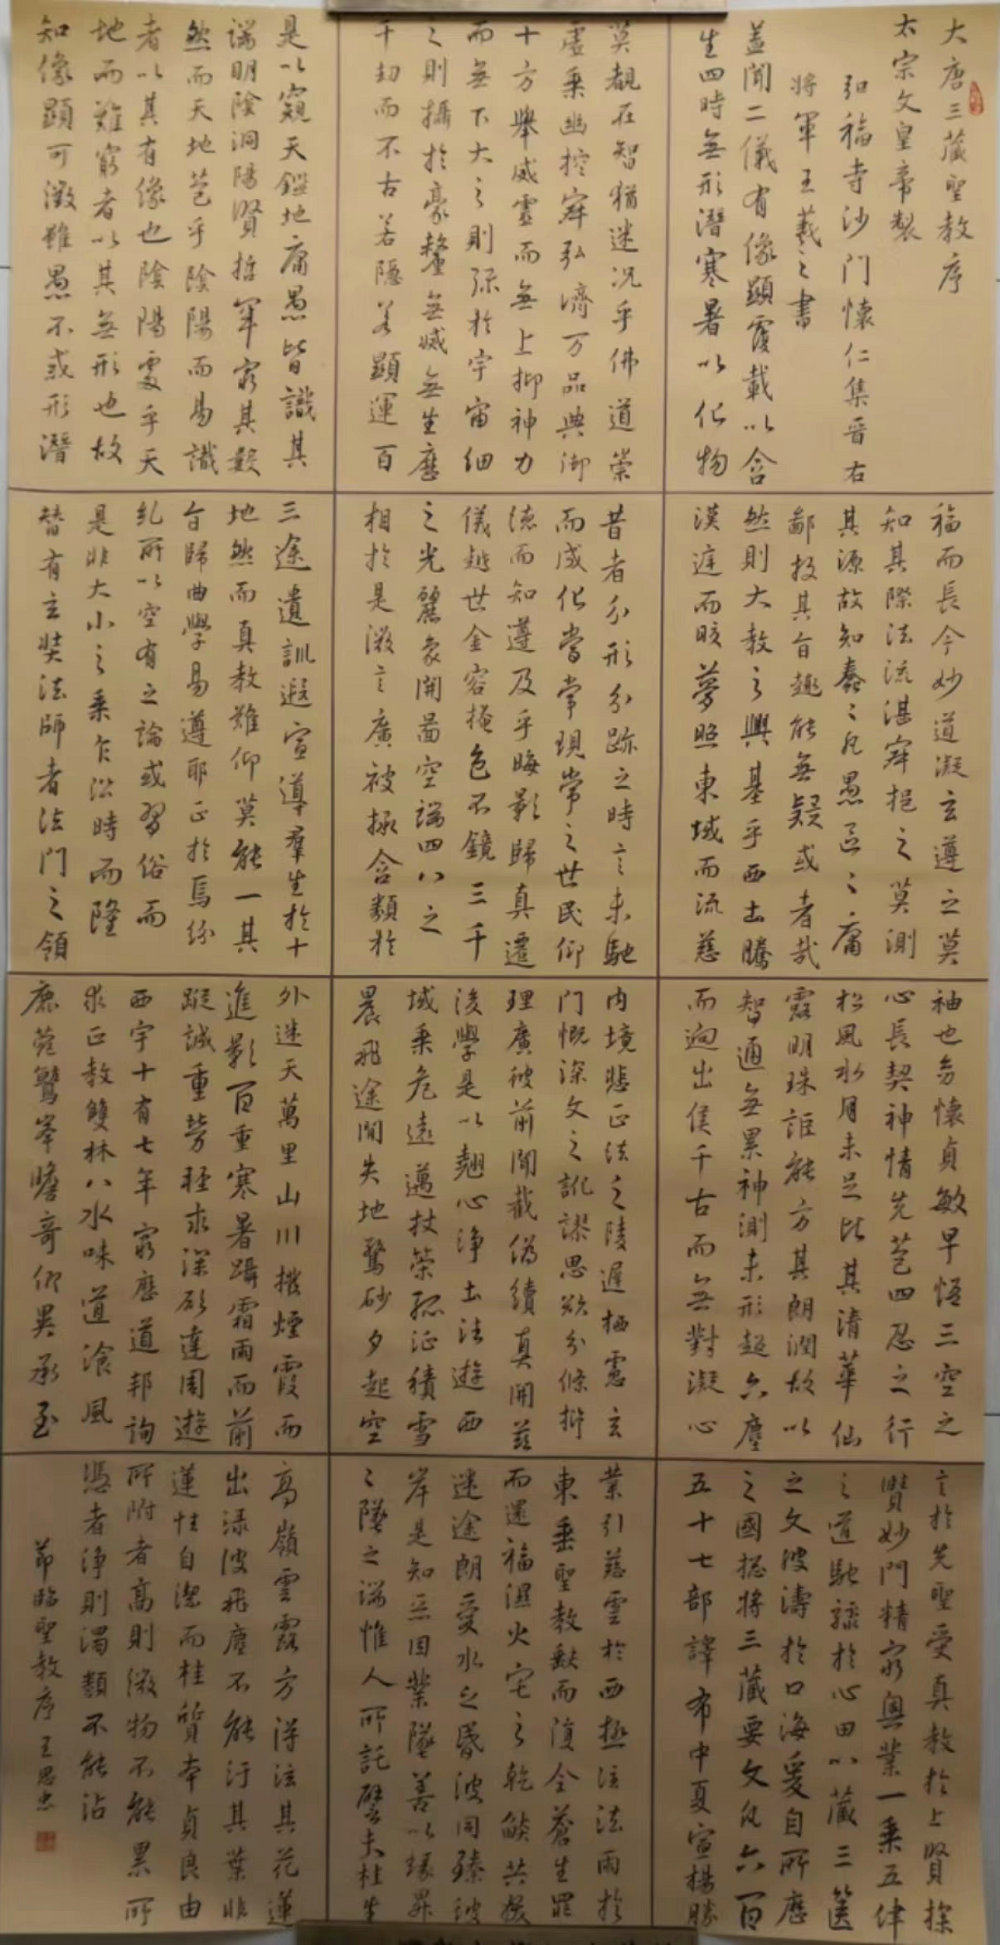 大唐三藏聖教序
太宗文皇帝製
弘福寺沙門懷仁集晉右
將軍王羲之書
蓋聞二儀有像顯覆載以含
生四時無形潛寒暑以化物
莫覩在智猶迷況乎佛道崇
虛乘幽控寂弘濟万品典御
十方舉威靈而無上抑神力
而無下大之則彌於宇宙細
之則攝於豪釐無滅無生歷
千劫而不古若隱若顯運百
是以窺天鑑地庸愚皆識其
端明陰洞陽賢哲罕窮其數
然而天地苞乎陰陽而易識
者以其有像也陰陽處乎天
地而難窮者以其無形也故
知像顯可徵雖愚不惑形潛
福而長今妙道凝玄遵之莫
知其際法流湛寂挹之莫測
其源故知蠢〻凡愚區〻庸
鄙投其旨趣能無疑或者哉
然則大教之興基乎西土騰
漢庭而皎夢照東域而流慈
昔者分形分跡之時言未馳
而成化當常現常之世民仰
德而知遵及乎晦影歸真遷
儀越世金容掩色不鏡三千
之光麗象開圖空端四八之
相於是微言廣被拯含類於
三途遺訓遐宣導羣生於十
地然而真教難仰莫能一其
旨歸曲學易遵耶正於焉紛
糺所以空有之論或習俗而
是非大小之乘乍沿時而隆
替有玄奘法師者法門之領
袖也幼懷貞敏早悟三空之
心長契神情先苞四忍之行
松風水月未足比其清華仙
露明珠詎能方其朗潤故以
智通無累神測未形超六塵
而迥出隻千古而無對凝心
內境悲正法之陵遲栖慮玄
門慨深文之訛謬思欲分條析
理廣彼前聞截偽續真開茲
後學是以翹心淨土法遊西
域乘危遠邁杖策孤征積雪
晨飛途間失地驚砂夕起空
外迷天萬里山川撥煙霞而
進影百重寒暑躡霜雨而前
蹤誠重勞輕求深願達周遊
西宇十有七年窮歷道邦詢
求正教雙林八水味道飡風
鹿菀鷲峯瞻奇仰異承至
言於先聖受真教於上賢探
賾妙門精窮奧業一乘五律
之道馳驟於心田八藏三篋
之文波濤於口海爰自所歷
之國總將三藏要文凡六百
五十七部譯布中夏宣揚勝
業引慈雲於西極注法雨於
東垂聖教缺而復全蒼生罪
而還福濕火宅之乾燄共拔
迷途朗愛水之昏波同臻彼
岸是知惡因業墜善以緣昇
〻墜之端惟人所託譬夫桂生
高嶺雲露方得泫其花蓮
出淥波飛塵不能汙其葉非
蓮性自潔而桂質本貞良由
所附者高則微物不能累所
憑者淨則濁類不能沾
節臨聖教序王思忠